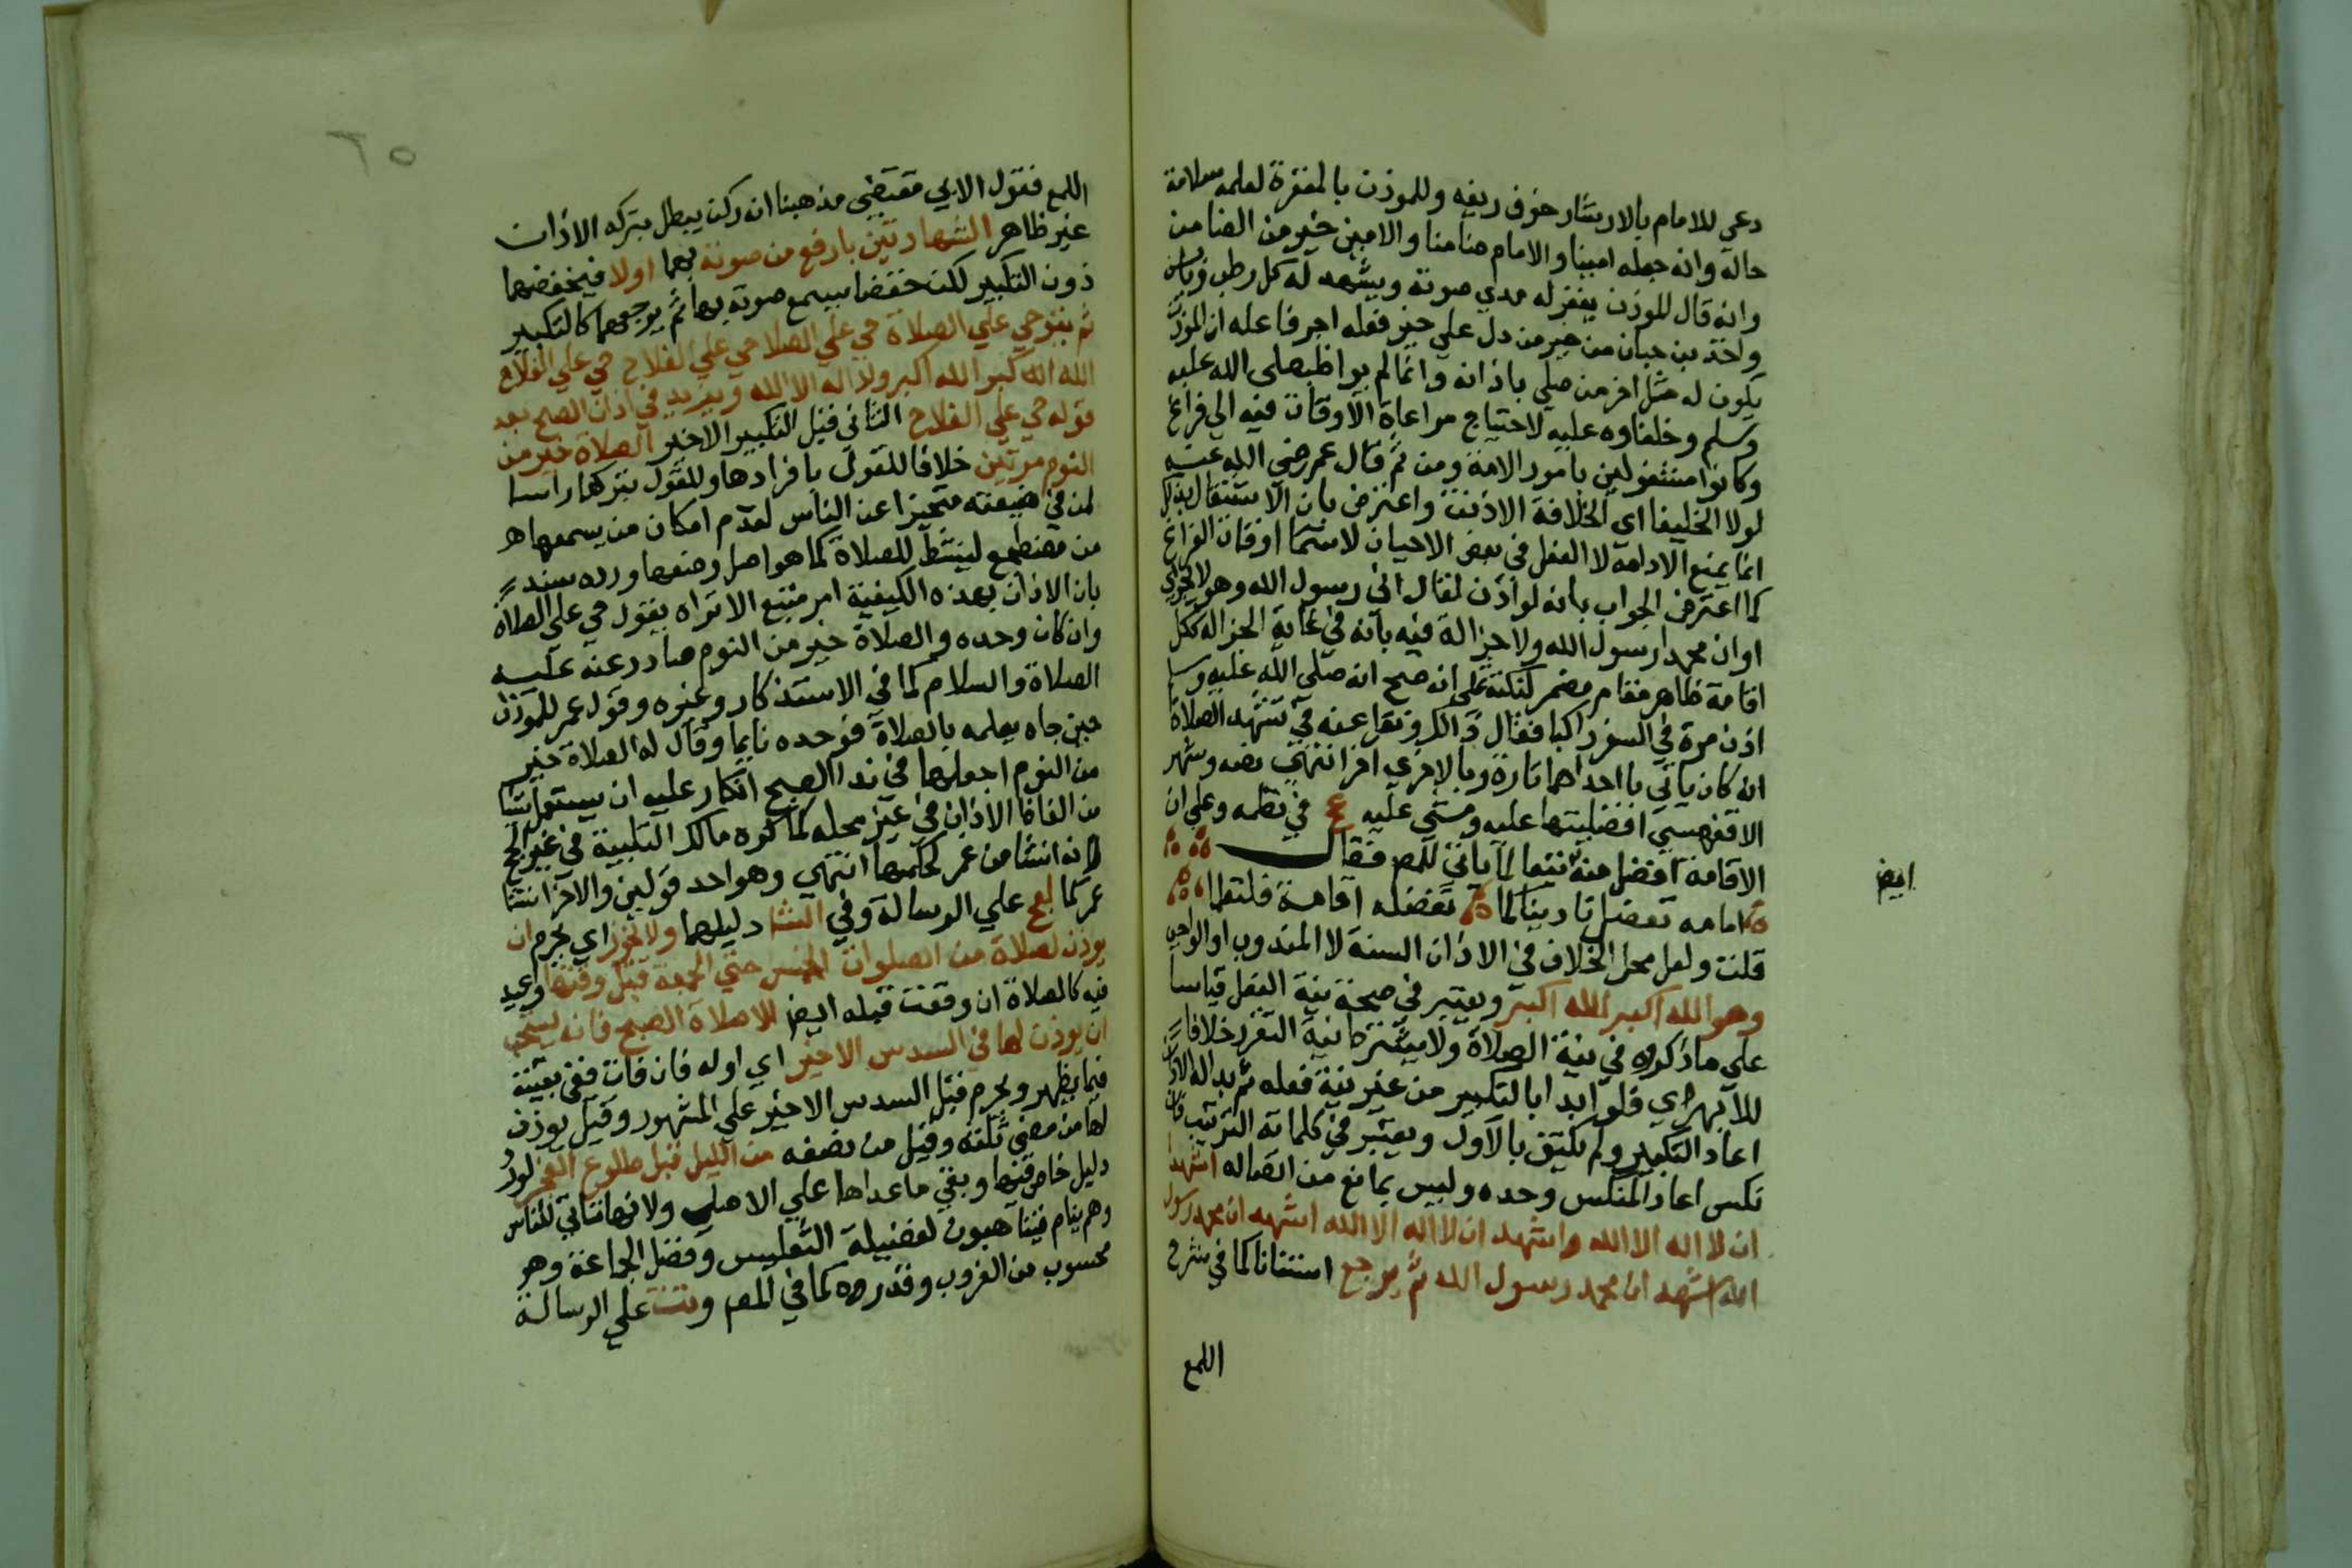 دعي للامام بالارشاد خوف ريغه وللموذن بالمغفرة لعلمه سلامة
حاله وانه جعله امينا والامام ضامنا والامين خير من الضامن
وانه قال للموذن يغفر له مدي صوته ويشهد له كل رطب ويابس
واخذ بن حبان من خبر من دل علي خير فله اجر فاعله ان الموذن
يكون له مثل اجر من صلي باذانه وانما لم يواظب صلي الله عليه
وسلم وخلفاوه عليه لاحتياج مراعاة الاوقات فيه الي فراغ
وكانوا مشتغولين بامور الامة ومن ثم قال عمر رضي الله عنه
لولا الخليفا اي الخلافة لاذنت واعترض بان الاشتغال بذلك
انما يمنع الادامة لا الفعل في بعض الاحيان لاسيما اوقات الفراغ
كما اعترض الجواب بانه لو اذن لقال اني رسول الله وهو لا يجزي
او ان محمدا رسول الله ولا جزالة فيه بانه في غاية الجزالة ككل
اقامة ظاهر مقام مضمر لنكتة علي انه صح انه صلي الله عليه وسلم
اذن مرة في السفر راكبا فقال ذالك ونقل عنه في تشهد الصلاة
انه كان ياتي باحداهما تارة وبالاخري اخر انتهي نصه وشهر
الاقفهسي افضليتها عليه ومشي عليه عج في نظمه وعلي ان
الاقامة افضل منه تنبها لما ياتي للمص فقال
امامه تفضل تاذينا كما تفضله اقامة فلتعلما
قلت ولعل محل الخلاف في الاذان السنة لا المندوب او الواجب
وهو الله اكبر الله اكبر ويعتبر في صحة نية الفعل قياسا
علي ما ذكروه في نية الصلاة ولا يشترط نية التقرب خلافا
للابهري فلو ابدا بالتكبير من غير نية فعله ثم بدا له الاذان
اعاد التكبير ولم يكتف بالاول ويعتبر في كلماته الترتيب فان
نكس اعاد المنكس وحده وليس بمانع من اتصاله اشهد
ان لا اله الا الله واشهد ان لا اله الا الله اشهد ان محمد رسول
الله اشهد ان محمد رسول الله ثم يرجع استنانا كما في شرح
اللمع
ايض
٦٥
اللمع فقول الابي مقتضي مذهبنا انه ركن يبطل بتركه الاذان
غير ظاهر الشهادتين بارفع من صوته بهما اولا فيخفضهما
دون التكبير لكن خفضا يسمع صوته بهما ثم يرجعهما كالتكبير
ثم يقول حي علي الصلاة حي علي الصلا حي علي الفلاح حي علي الفلاح
الله الله كبر الله اكبر ولا اله الا الله ويزيد في اذان الصبح بعد
قوله حي علي الفلاح الثاني قبل التكبير الاخير الصلاة خير من
النوم مرتين خلافا للقول بافرادها وللقول بتركها راسا
لمن في ضيعته متحيزا عن الناس لعدم امكان من يسمعها
من مضطجع لينشط للصلاة كما هو اصل وضعها ورده سند
بان الاذان بهذه الكيفية امر متبع الا تراه يقول حي علي الصلاة
وان كان وحده والصلاة خير من النوم صادر عنه عليه
الصلاة والسلام كما في الاستذكار وغيره وقول عمر للموذن
حين جاه يعلمه بالصلاة فوجده نايما وقال له الصلاة خير
من النوم اجعلها في ندا الصبح انكار عليه ان يستعمل شيا
من الفاظ الاذان في غير محله كما كره مالك التلبية في غير الحج
لا انه انشا من عمر لحكمها انتهي وهو احد قولين والاخر انشا
عمر كما لعج علي الرسالة وفي الشا دليلهما ولا يجوز اي يحرم ان
يوذن لصلاة من الصلوات الخمس حتي الجمعة قبل وقتها واعيد
فيه كالصلاة ان وقعت قبله ايض الا صلاة الصبح فانه يستحب
ان يوذن لها في السدس الاخير اي اوله فان فات ففي بقيته
فيما يظهر ويحرم قبل السدس الاخير علي المشهور وقيل يوذن
لها من مضي ثلثه وقيل من نصفه من الليل قبل طلوع الفجر لورود
دليل خاص فيها وبقي ما عداها علي الاصل ولانها تاتي للناس
وهم نيام فيتاهبون لفضيلة التغليس وفضل الجماعة وهو
محسوب من الغروب وقدروه كما في المص وتت علي الرسالة